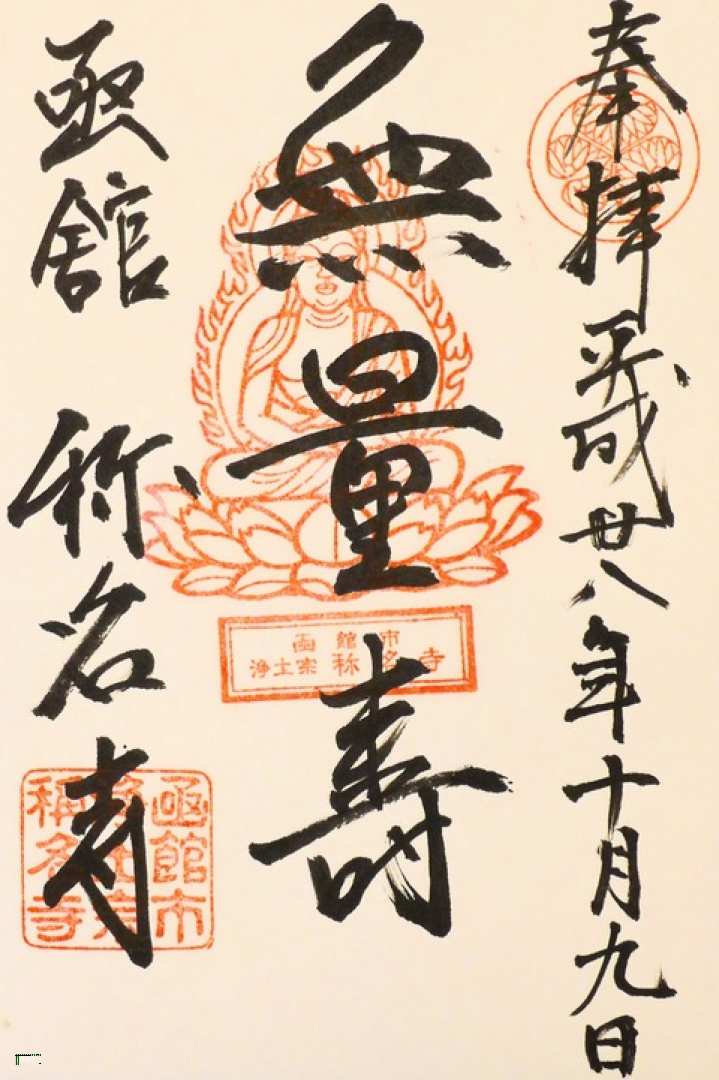 奉拝 平成廿八年十月九日
無量壽
函館市
浄土宗 称名寺
函館 称名寺
函館市
称名寺